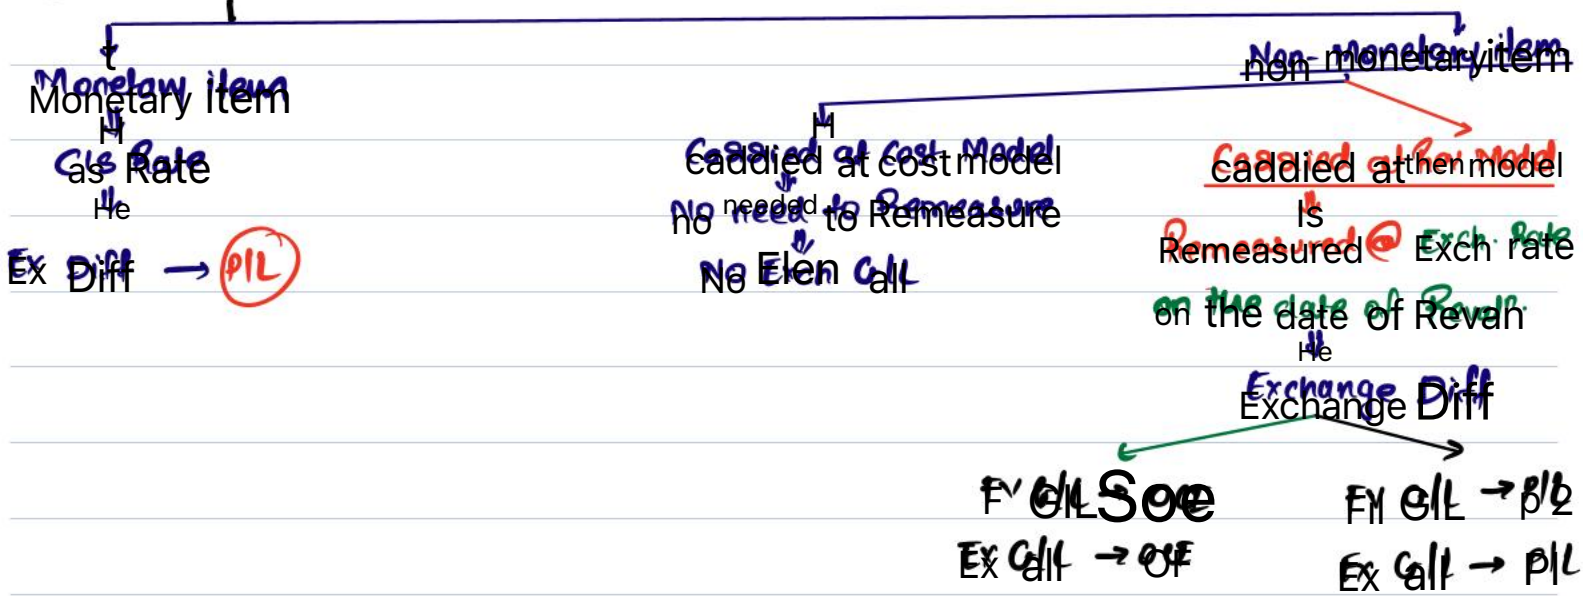 Monetary item
Cls Rate
Ex Diff → P/L
Non-Monetary item
Carried at Cost Model
No need to Remeasure
No Exch G/L
Carried at Rev Model
Remeasured @ Exch. Rate
on the date of Revalⁿ.
Exchange Diff
FV G/L → OCE
Ex G/L → OCE
FV G/L → P/L
Ex G/L → P/L